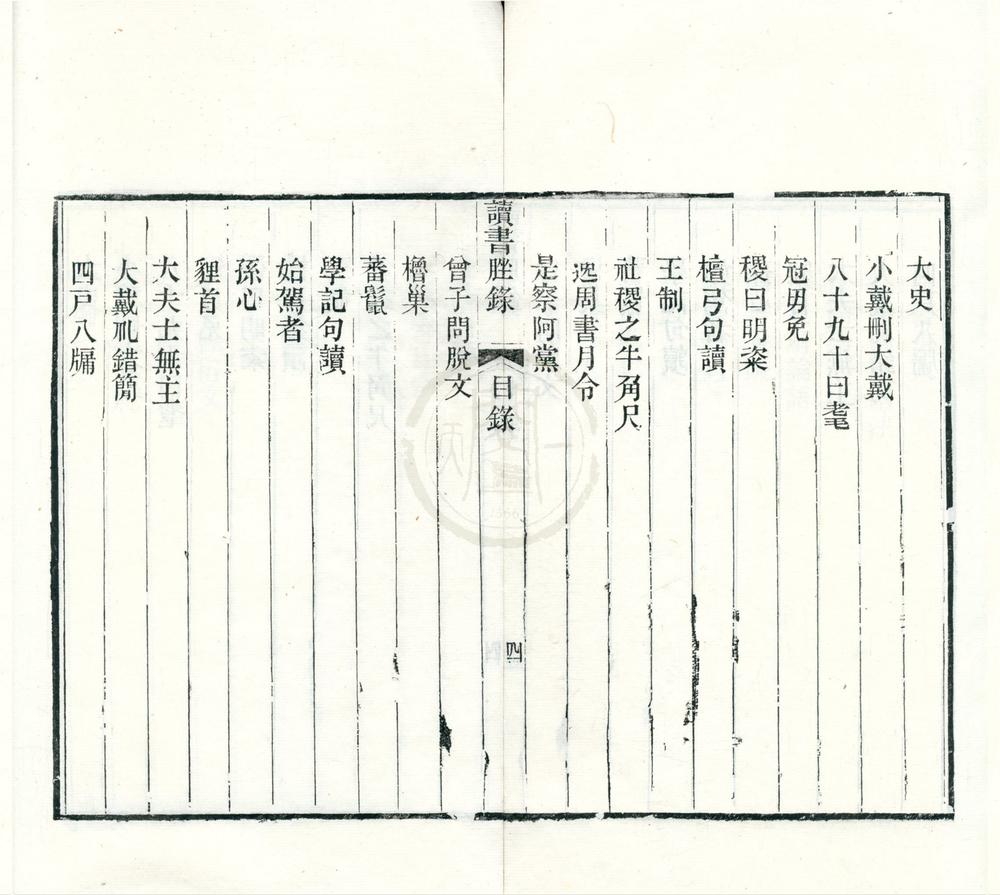 大史
小戴刪大戴
八十九十曰耄
冠毋免
稷曰明粢
檀弓句讀
王制
社稷之牛角尺
逸周書月令
是察阿黨
讀書脞錄 目錄 四
曾子問脫文
橧巢
蕃鬛
學記句讀
始駕者
孫心
貍首
大夫士無主
大戴礼錯簡
四戸八牖
1566